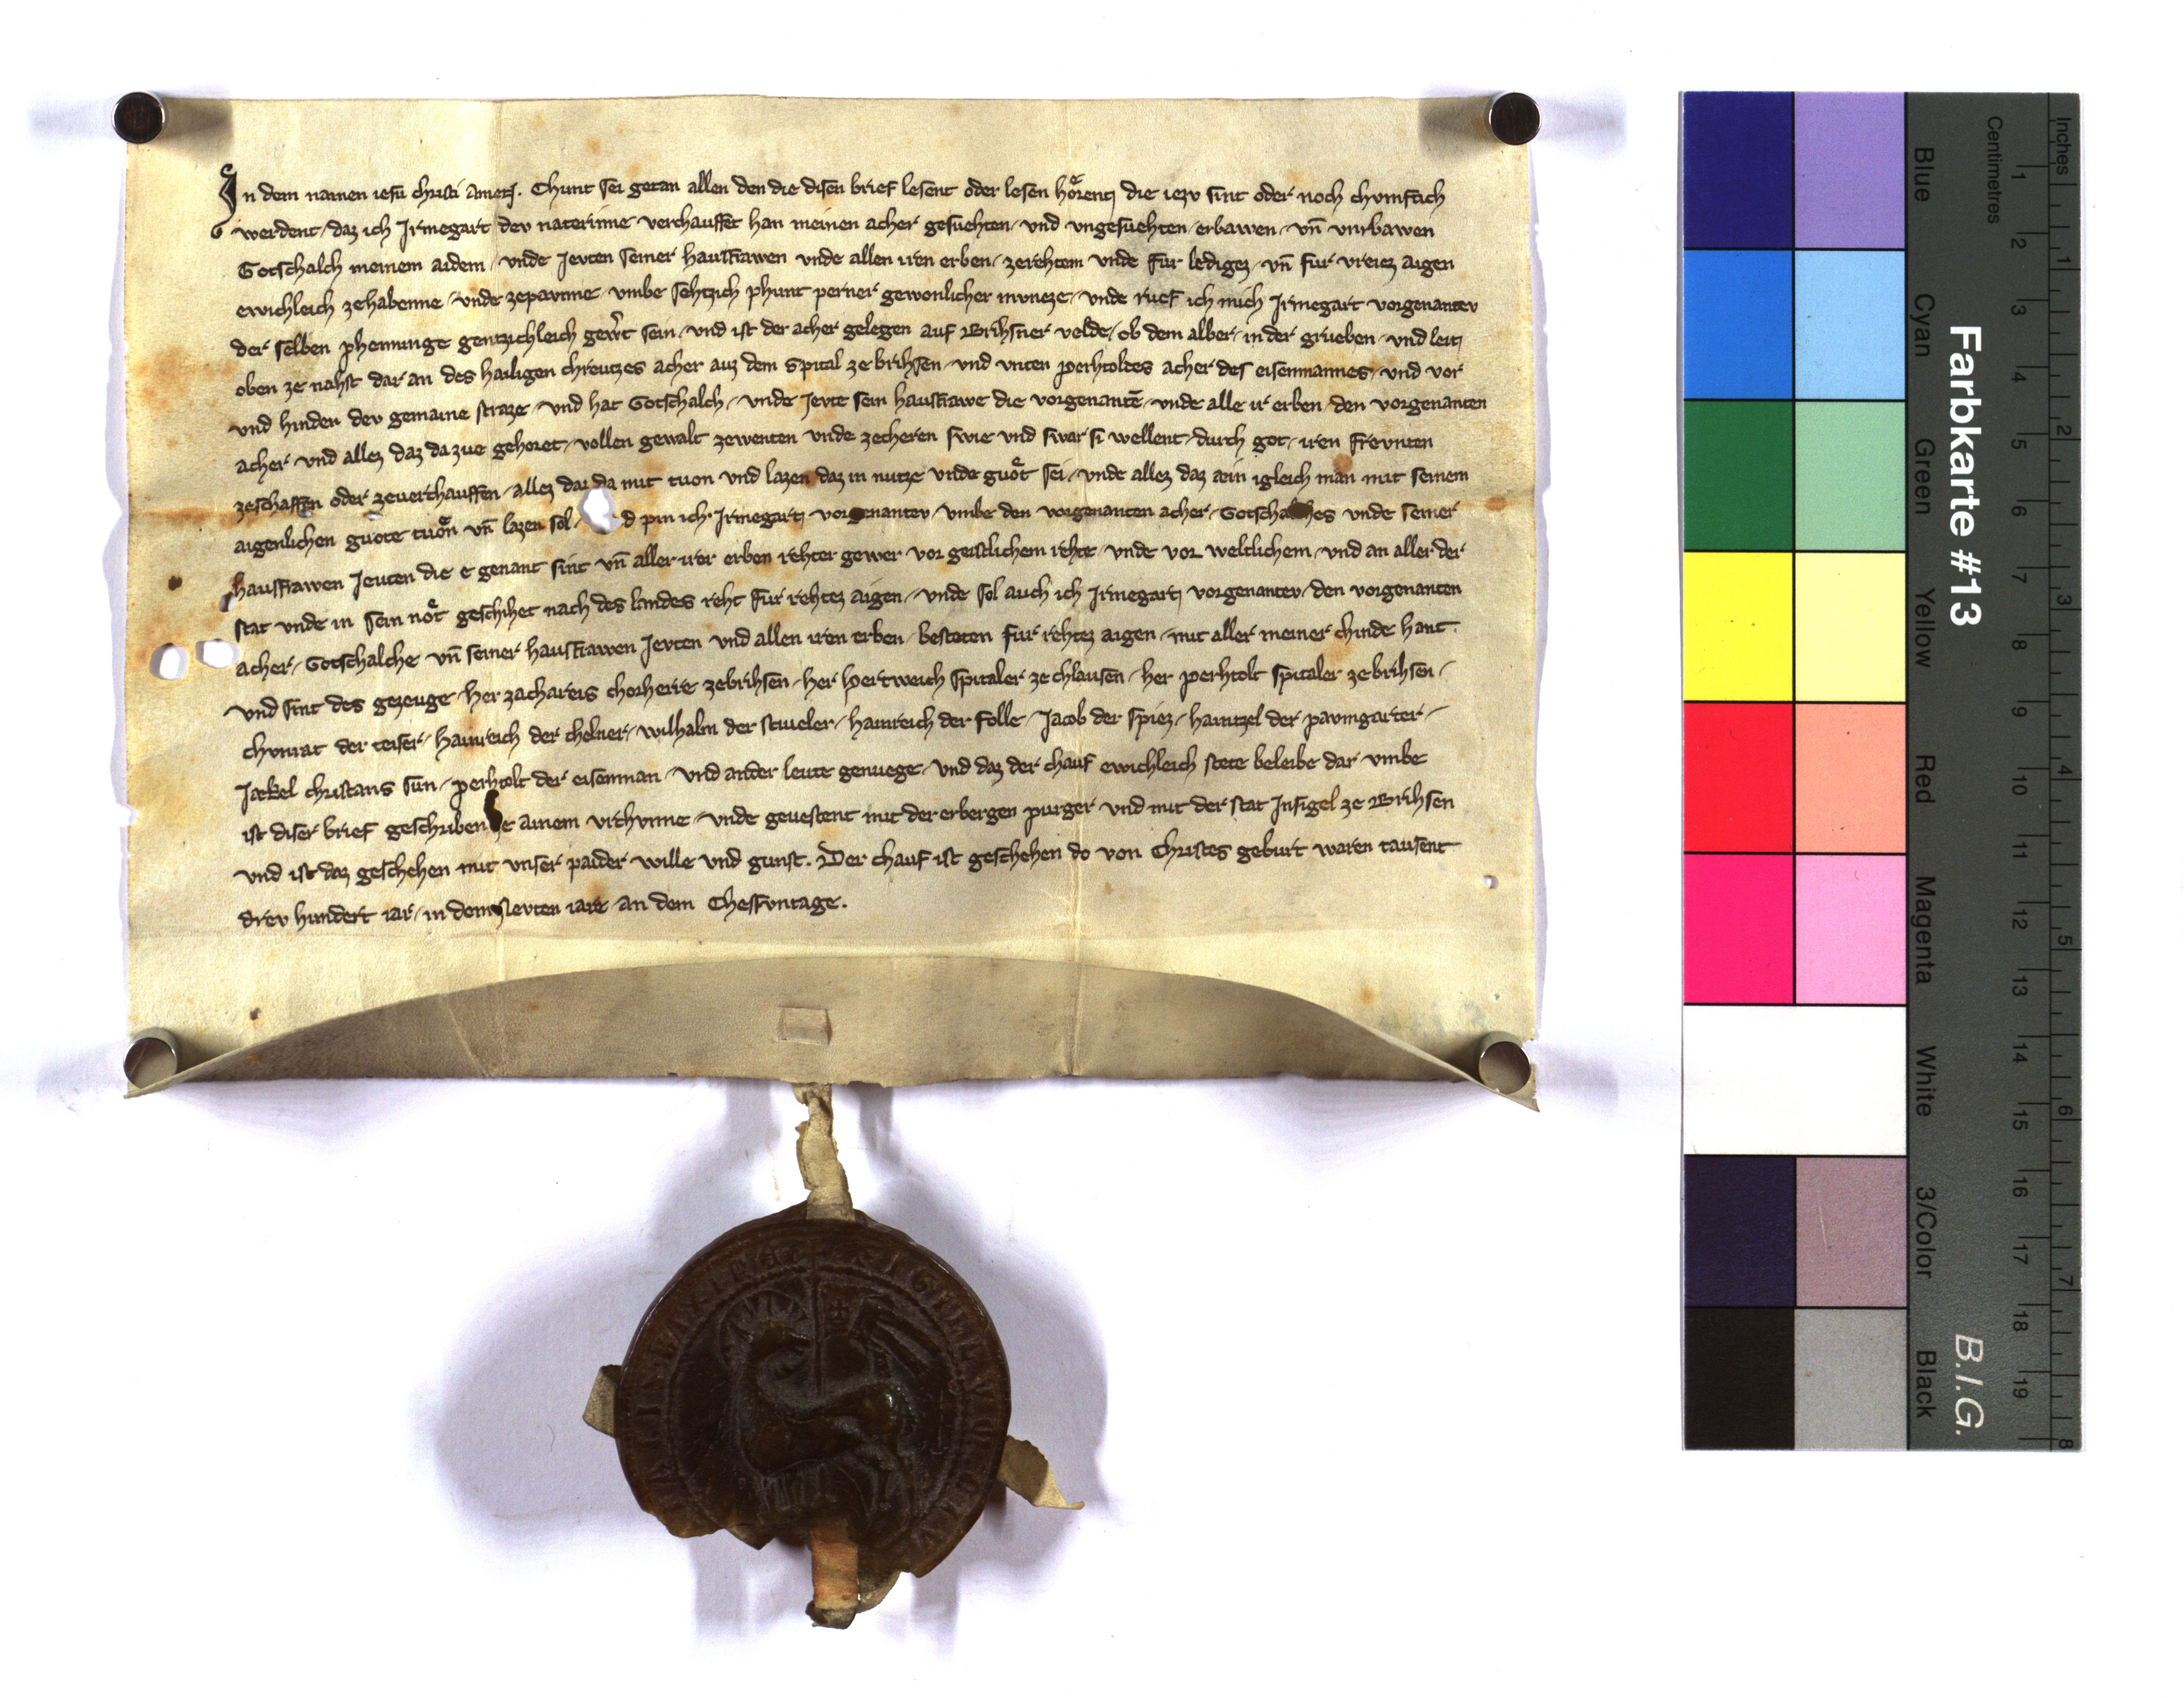 In dem namen iesu christi amen. Chunt sei getan allen den die disen brief lesent oder lesen hoͤrent die iezv sint oder noch chvnftich
werdent / daz ich Irmegart dev naterinne verchauffet han meinen acher gesuͤchten / vnd vngesuͤchten / erbawen / vn̄ vnrbawen
Gotschalch meinem aidem / vnde Jevten seiner hausfrawen vnde allen iren erben / zerehtem vnde fur ledigez / vn̄ fur vreiez aigen
ewichleich zehabenne / vnde zepawnne / vmbe sehtzich phunt perner gewonlicher mvneze / vnde ruef ich mich Irmegart vorgenantev
der selben phenninge gentzichleich gewͤrt sein / vnd ist der acher gelegen auf Brihsner velde / ob dem alber / in der grueben / vnd leit
oben ze nahst dar an des hailigen chreutzes acher auz dem spital ze brihsen / vnd vnten perhtoldes acher des eisenmannes / vnd vor
vnd hinden dev gemaine straze / vnd hat Gotschalch / vnde Jevte sein hausfrawe die vorgenantē / vnde alle ir erben / den vorgenanten
acher / vnd allez daz da zue gehoret / vollen gewalt zewenten vnde zecheren swie vnd swar si wellent / durch got / iren frevnten
zeschaffen oder zeverchauffen / allez daz da mit tuon vnd lazen daz in nutze vnde guoͤt sei / vnde allez daz ain igleich man mit seinem
aigenlichen guote tuoͤn vn̄ lazen sol / d pin ich Irmegart vorgenantev / vmbe den vorgenanten acher / Gotschalches vnde seiner
hausfrawen Jeuten die e genant sint vn̄ aller irer erben rehter gewer / vor geistlichem rehte / vnde vor weltlichem / vnd an aller der
stat vnde in sein noͤt geschihet nach des landes reht fur rehtez aigen / vnde sol auch ich Irmegart vorgenantev / den vorgenanten
acher / Gotschalche vn̄ seiner hausfrawen Jevten vnd allen iren erben / besteten fur rehtez aigen / mit aller meiner chinde hant.
vnd sint des gezeuge / her zachareis chorherre zebrihsen / her hertweich spitaler ze chlausen / her perhtolt spitaler ze brihsen /
chvnrat der teiser / hainreich der chelner / wilhalm der stiueler / hainreich der folle / Jacob der spiez / haintzel der pavmgarter /
Jaekel christans sun / perhtolt der eisenman / vnd ander leute genuege / vnd daz der chauf ewichleich stete beleibe dar vmbe
ist diser brief geschriben ze ainem vrchvnne / vnde gevestent mit der erbergen purger vnd mit der stat Insigel ze Brihsen
vnd ist daz geschehen mit vnser paider wille vnd gunst. Der chauf ist geschehen do von Christes geburt waren tausent
drev hundert iar / in dem iare an dem Chessvntage.
Farbkarte #13
B.I.G.
Inches
Centimetres
Blue
Cyan
Green
Yellow
Red
Magenta
White
3/Color
Black
1 2 3 4 5 6 7 8 9 10 11 12 13 14 15 16 17 18 19
1 2 3 4 5 6 7 8